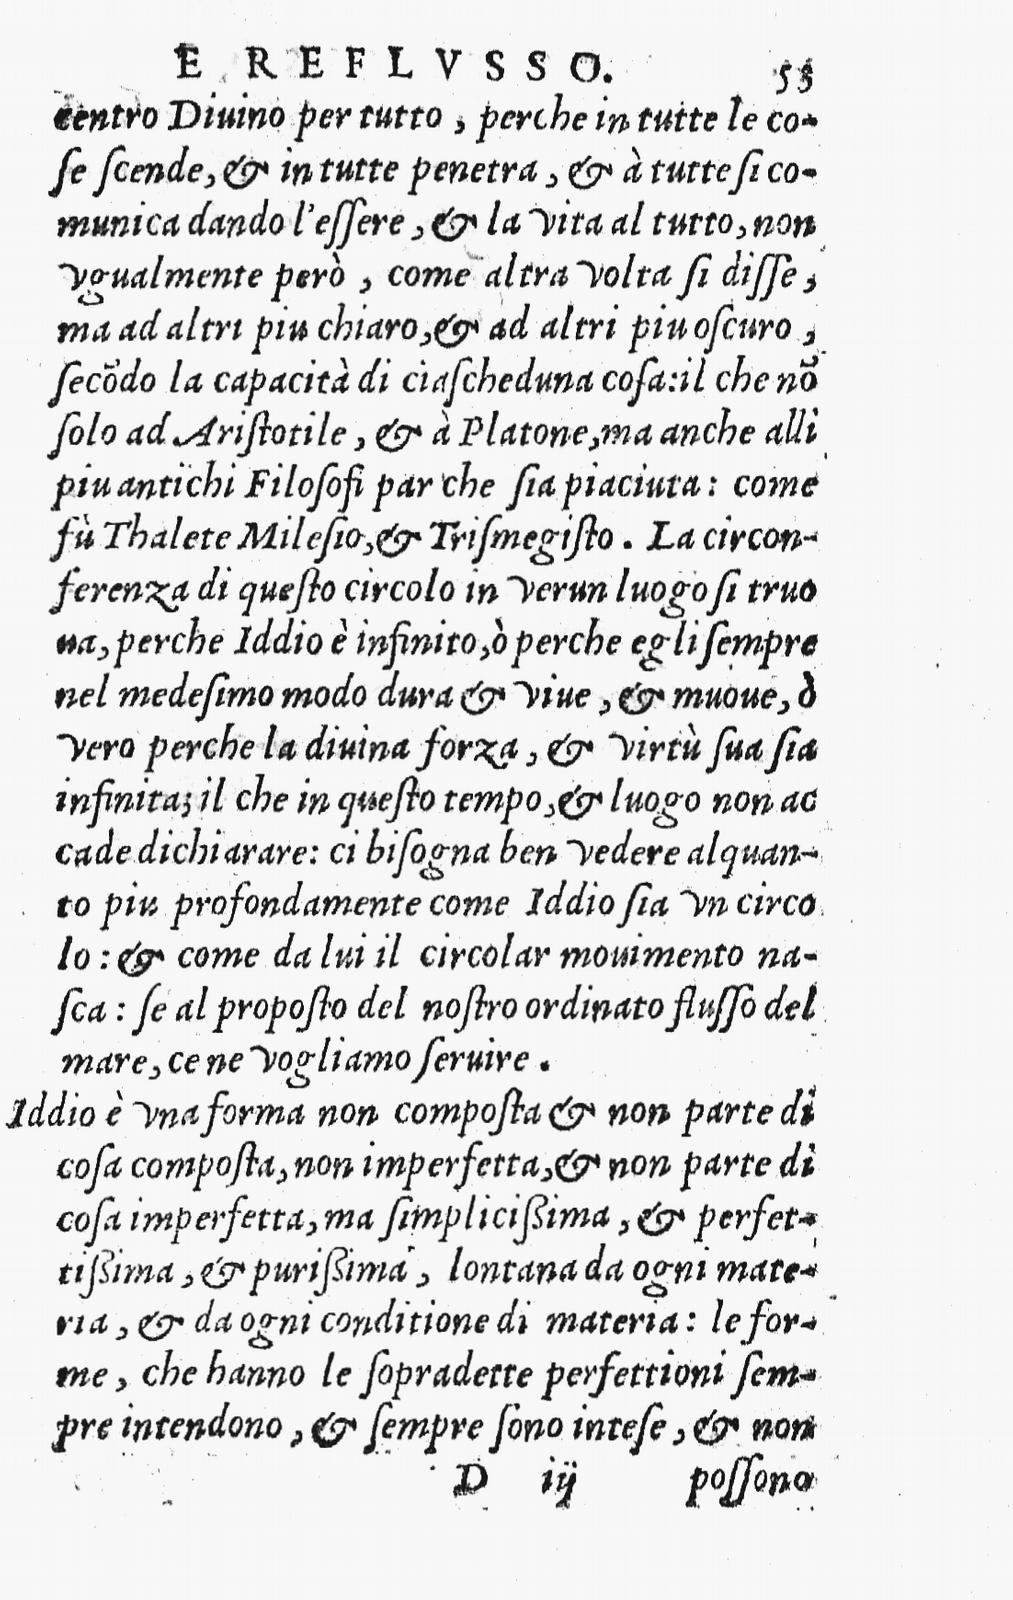 E REFLVSSO. 53
centro Diuino per tutto, perche in tutte le co-
ſe ſcende, & in tutte penetra, & à tutte ſi co-
munica dando l'eſſere, & la vita al tutto, non
vgualmente però, come altra volta ſi diſſe,
ma ad altri piu chiaro, & ad altri piu oſcuro,
ſecõdo la capacità di ciaſcheduna coſa: il che nõ
ſolo ad Ariſtotile, & à Platone, ma anche alli
piu antichi Filoſofi par che ſia piaciuta: come
fù Thalete Mileſio, & Triſmegiſto. La circon-
ferenza di queſto circolo in verun luogo ſi truo
ua, perche Iddio è infinito, ò perche egli ſempre
nel medeſimo modo dura & viue, & muoue, ò
vero perche la diuina forza, & virtù ſua ſia
infinita; il che in queſto tempo, & luogo non ac
cade dichiarare: ci biſogna ben vedere alquan-
to piu profondamente come Iddio ſia vn circo
lo: & come da lui il circolar mouimento na-
ſca: ſe al propoſto del noſtro ordinato fluſſo del
mare, ce ne vogliamo ſeruire.
Iddio è vna forma non compoſta & non parte di
coſa compoſta, non imperfetta, & non parte di
coſa imperfetta, ma ſimpliciſſima, & perfet-
tiſſima, & puriſſima, lontana da ogni mate-
ria, & da ogni conditione di materia: le for-
me, che hanno le ſopradette perfettioni ſem-
pre intendono, & ſempre ſono inteſe, & non
D iij poſſono